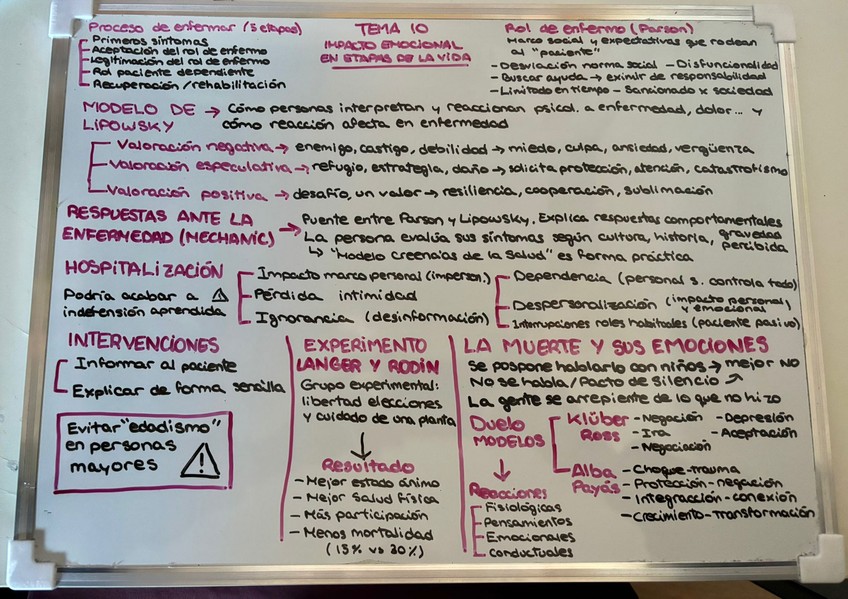 Proceso de enfermar (5 etapas)
Primeros síntomas
Aceptación del rol de enfermo
Legitimación del rol de enfermo
Rol paciente dependiente
Recuperación/rehabilitación
TEMA 10
IMPACTO EMOCIONAL
EN ETAPAS DE LA VIDA
Rol de enfermo (Parson)
Marco social y expectativas que rodean
al "paciente"
- Desviación norma social - Disfuncionalidad
- Buscar ayuda → eximir de responsabilidad
- Limitado en tiempo - Sancionado x sociedad
MODELO DE LIPOWSKY → Cómo personas interpretan y reaccionan psicol. a enfermedad, dolor... y
cómo reacción afecta en enfermedad
Valoración negativa → enemigo, castigo, debilidad → miedo, culpa, ansiedad, vergüenza
Valoración especulativa → refugio, estrategia, daño → solicita protección, atención, catastrofismo
Valoración positiva → desafío, un valor → resiliencia, cooperación, sublimación
RESPUESTAS ANTE LA
ENFERMEDAD (MECHANIC) →
Puente entre Parson y Lipowsky. Explica respuestas comportamentales
La persona evalúa sus síntomas según cultura, historia, gravedad
percibida
↳ "Modelo creencias de la Salud" es forma práctica
HOSPITALIZACIÓN
Podría acabar a ⚠
indefensión aprendida
Impacto marco personal (imperson.)
Pérdida intimidad
Ignorancia (desinformación)
Dependencia (personal s. controla todo)
Despersonalización (impacto personal
y emocional)
Interrupciones roles habituales (paciente pasivo)
INTERVENCIONES
Informar al paciente
Explicar de forma sencilla
Evitar "edadismo"
en personas
mayores ⚠
EXPERIMENTO
LANGER Y RODIN
Grupo experimental:
libertad elecciones
y cuidado de una planta
↓
Resultado
- Mejor estado ánimo
- Mejor salud física
- Más participación
- Menos mortalidad
(15% vs 30%)
LA MUERTE Y SUS EMOCIONES
Se pospone hablarlo con niños → mejor NO
No se habla/Pacto de silencio
La gente se arrepiente de lo que no hizo
Duelo
MODELOS
↓
Reacciones
Fisiológicas
Pensamientos
Emocionales
conductuales
Klüber
Ross
- Negación - Depresión
- Ira - Aceptación
- Negociación
Alba
Payás
- Choque-trauma
- Protección-negación
- Integracción-conexión
- Crecimiento-transformación